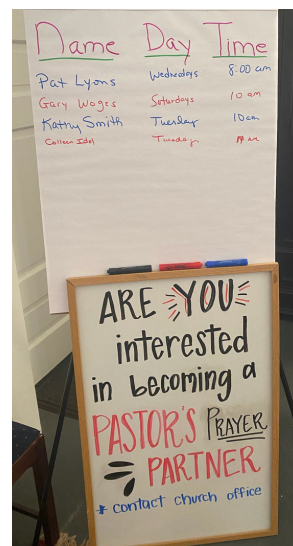 Name Day Time
Pat Lyons Wednesdays 8:00 am
Gary Wages Saturdays 10 am
Kathy Smith Tuesday 10 am
Colleen Idol Tuesday am
ARE YOU
interested
in becoming a
PASTOR'S PRAYER
PARTNER
* contact church office